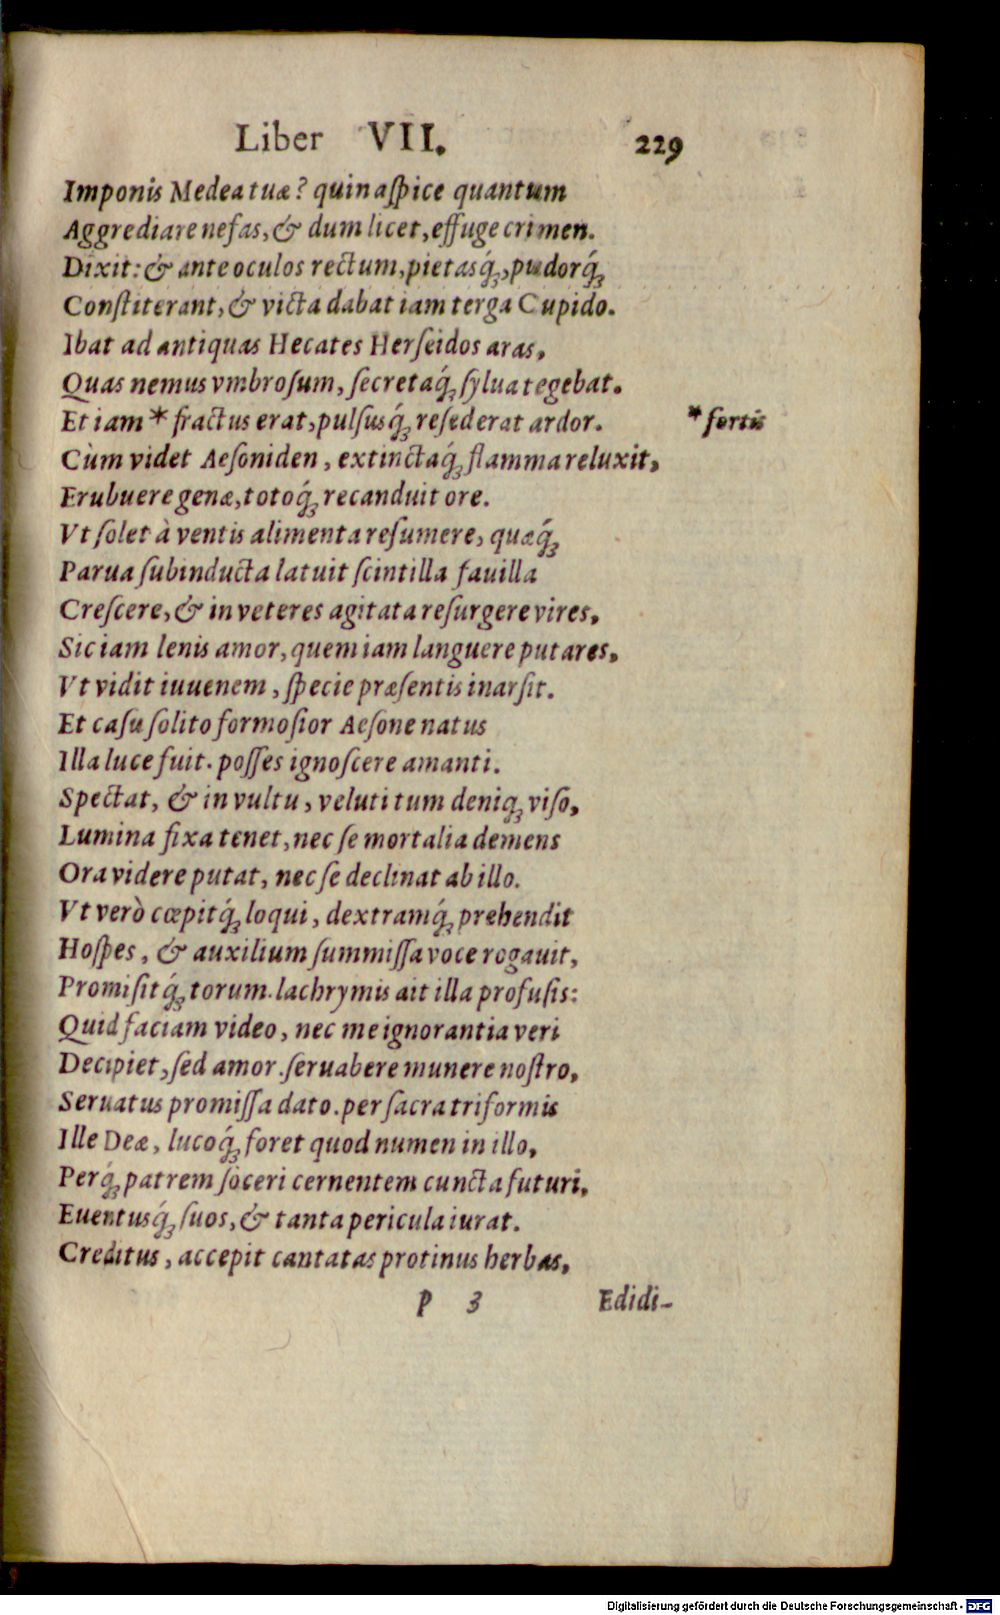 Liber VII. 229
Imponis Medea tuæ? quin aſpice quantum
Aggrediare nefas, & dum licet, effuge crimen.
Dixit: & ante oculos rectum, pietasq́ꝫ, pudorq́ꝫ
Conſtiterant, & victa dabat iam terga Cupido.
Ibat ad antiquas Hecates Herſeidos aras,
Quas nemus vmbroſum, ſecretaq́ꝫ ſylua tegebat.
Et iam * fractus erat, pulſusq́ꝫ reſederat ardor. * fortis
Cùm videt Aeſoniden, extinctaq́ꝫ flamma reluxit,
Erubuere genæ, totoq́ꝫ recanduit ore.
Vt ſolet à ventis alimenta reſumere, quæq́ꝫ
Parua ſubinducta latuit ſcintilla fauilla
Creſcere, & in veteres agitata reſurgere vires,
Sic iam lenis amor, quem iam languere putares,
Vt vidit iuuenem, ſpecie præſentis inarſit.
Et caſu ſolito formoſior Aeſone natus
Illa luce fuit. poſſes ignoſcere amanti.
Spectat, & in vultu, veluti tum deniqꝫ viſo,
Lumina fixa tenet, nec ſe mortalia demens
Ora videre putat, nec ſe declinat ab illo.
Vt verò cœpitq́ꝫ loqui, dextramq́ꝫ prehendit
Hoſpes, & auxilium ſummiſſa voce rogauit,
Promiſitq́ꝫ torum. lachrymis ait illa profuſis:
Quid faciam video, nec me ignorantia veri
Decipiet, ſed amor. ſeruabere munere noſtro,
Seruatus promiſſa dato. per ſacra triformis
Ille Deæ, lucoq́ꝫ foret quod numen in illo,
Perq́ꝫ patrem ſoceri cernentem cuncta futuri,
Euentusq́ꝫ ſuos, & tanta pericula iurat.
Creditus, accepit cantatas protinus herbas,
P 3 Edidi-
Digitalisierung gefördert durch die Deutsche Forschungsgemeinschaft - DFG